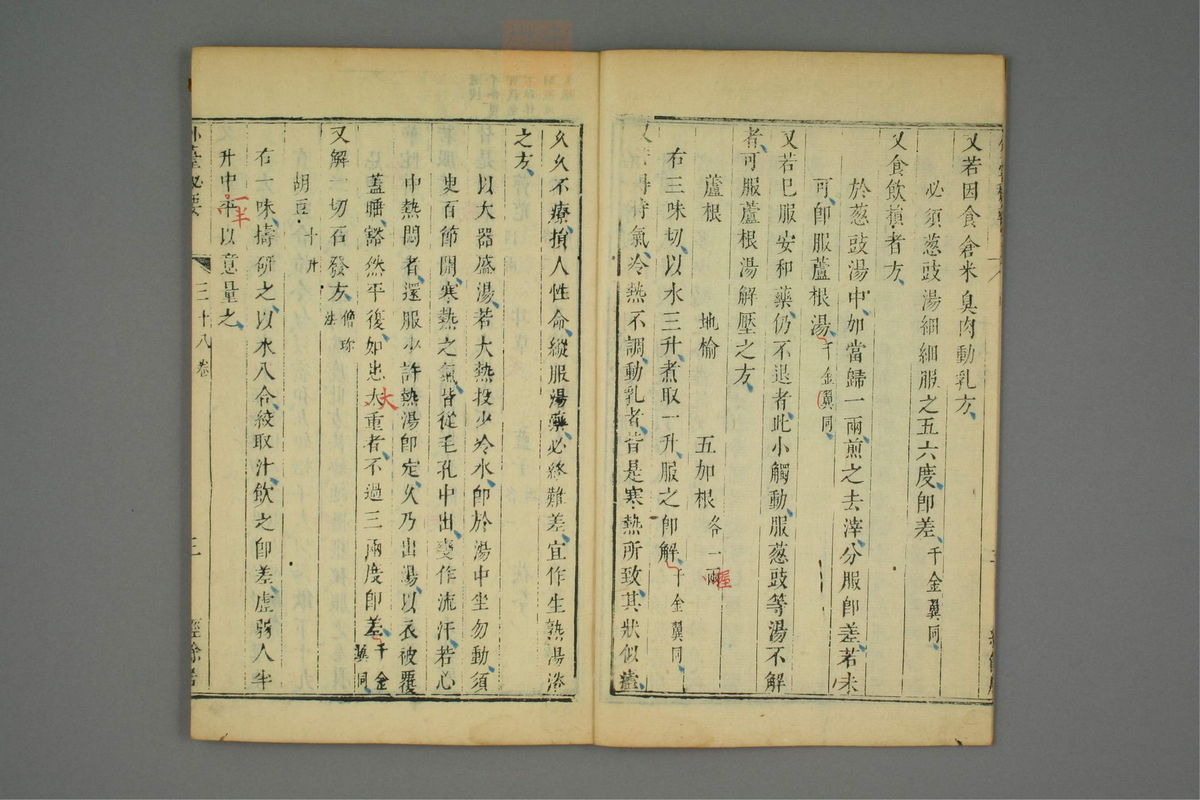 又若因食倉米臭肉動乳方
必須葱豉湯細細服之五六度卽差千金翼同
又食飲植者方
於葱豉湯中加當歸一兩煎之去滓分服卽差若未
可卽服蘆根湯千金翼同
又若已服安和藥仍不退者此小觸動服葱豉等湯不解
者可服蘆根湯解壓之方
蘆根 地榆 五加根各一兩握
右三味切以水三升煮取一升服之卽解千金翼同
氣冷熱不調動乳者皆是寒熱所致其狀似瘧
久久不療損人性命縱服湯藥必終難差宜作生熟湯浴
之方
以大器盛湯若大熱投少冷水卽於湯中坐勿動須
臾百節開寒熱之氣皆從毛孔中出變作流汗若心
中熱悶者還服少許熱湯卽定久乃出湯以衣被覆
蓋睡豁然平復如患大大重者不過三兩度卽差千金
翼同
又解一切石發方僧珍
法
胡豆十升
右一味擣研之以水八合絞取汁飲之卽差虛弱人半
升中半一半以意量之
外臺秘要 三十八卷 三 經餘居